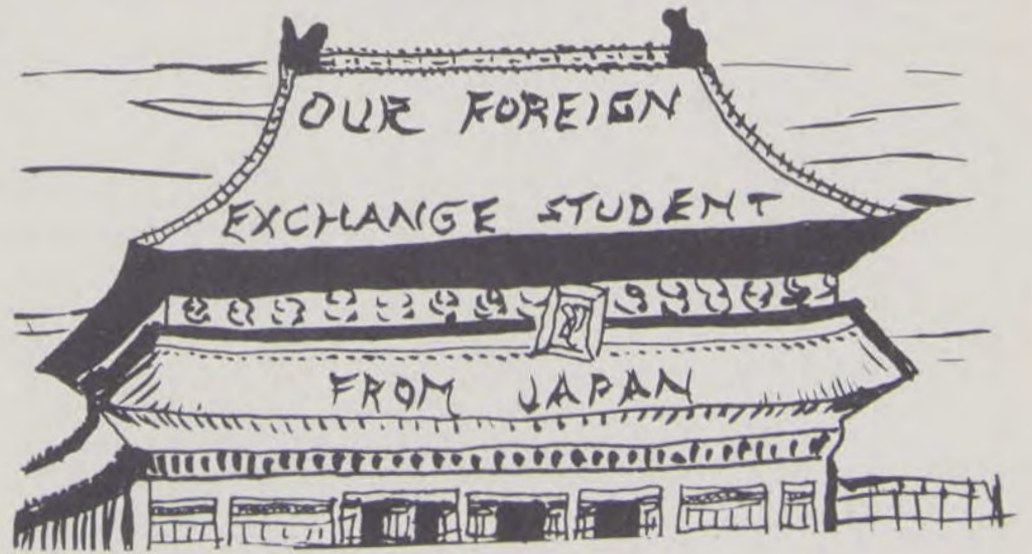 OUR FOREIGN
EXCHANGE STUDENT
FROM JAPAN